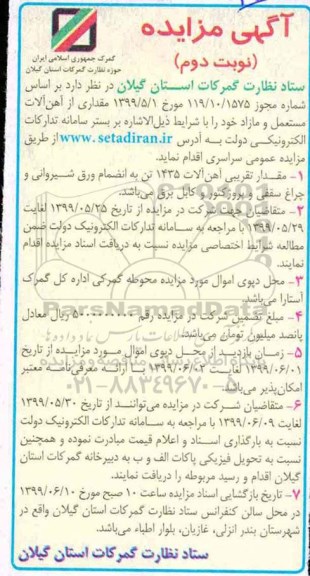 آگهی مزایده
(نوبت دوم)
گمرک جمهوری اسلامی ایران
حوزه نظارت گمرکات استان گیلان
ستاد نظارت گمرکات استان گیلان در نظر دارد بر اساس
شماره مجوز ۱۱۹/۱۰/۱۵۷۵ مورخ ۱۳۹۹/۵/۱ مقداری از آهن‌آلات
مستعمل و مازاد خود را با شرایط ذیل‌الاشاره بر بستر سامانه تدارکات
الکترونیکی دولت به آدرس www.setadiran.ir از طریق
مزایده عمومی سراسری اقدام نماید.
۱- مقدار تقریبی آهن آلات ۱۴۳۵ تن به انضمام ورق شیروانی و
چراغ سقفی و پروژکتور و کابل برق می‌باشد.
۲- متقاضیان جهت شرکت در مزایده از تاریخ ۱۳۹۹/۰۵/۲۵ لغایت
۱۳۹۹/۰۵/۲۹ با مراجعه به سامانه تدارکات الکترونیک دولت ضمن
مطالعه شرایط اختصاصی مزایده نسبت به دریافت اسناد مزایده اقدام
نمایند.
۳- محل دپوی اموال مورد مزایده محوطه گمرکی اداره کل گمرک
آستارا می‌باشد.
۴- مبلغ تضمین شرکت در مزایده رقم ۵۰۰۰۰۰۰۰۰۰ ریال معادل
پانصد میلیون تومان می‌باشد.
۵- زمان بازدید از محل دپوی اموال مورد مزایده از تاریخ
۱۳۹۹/۰۶/۰۱ لغایت ۱۳۹۹/۰۶/۰۳ با ارائه معرفی‌نامه معتبر
امکان‌پذیر می‌باشد.
۶- متقاضیان شرکت در مزایده می‌توانند از تاریخ ۱۳۹۹/۰۵/۳۰
لغایت ۱۳۹۹/۰۶/۰۹ با مراجعه به سامانه تدارکات الکترونیک دولت
نسبت به بارگذاری اسناد و اعلام قیمت مبادرت نموده و همچنین
نسبت به تحویل فیزیکی پاکات الف و ب به دبیرخانه گمرکات استان
گیلان اقدام و رسید مربوطه را دریافت نمایند.
۷- تاریخ بازگشایی اسناد مزایده ساعت ۱۰ صبح مورخ ۱۳۹۹/۰۶/۱۰
در محل سالن کنفرانس ستاد نظارت گمرکات استان گیلان واقع در
شهرستان بندر انزلی، غازیان، بلوار اطباء می‌باشد.
ستاد نظارت گمرکات استان گیلان
ParsNamadData
۰۲۱-۸۸۳۴۹۶۷۰-۵